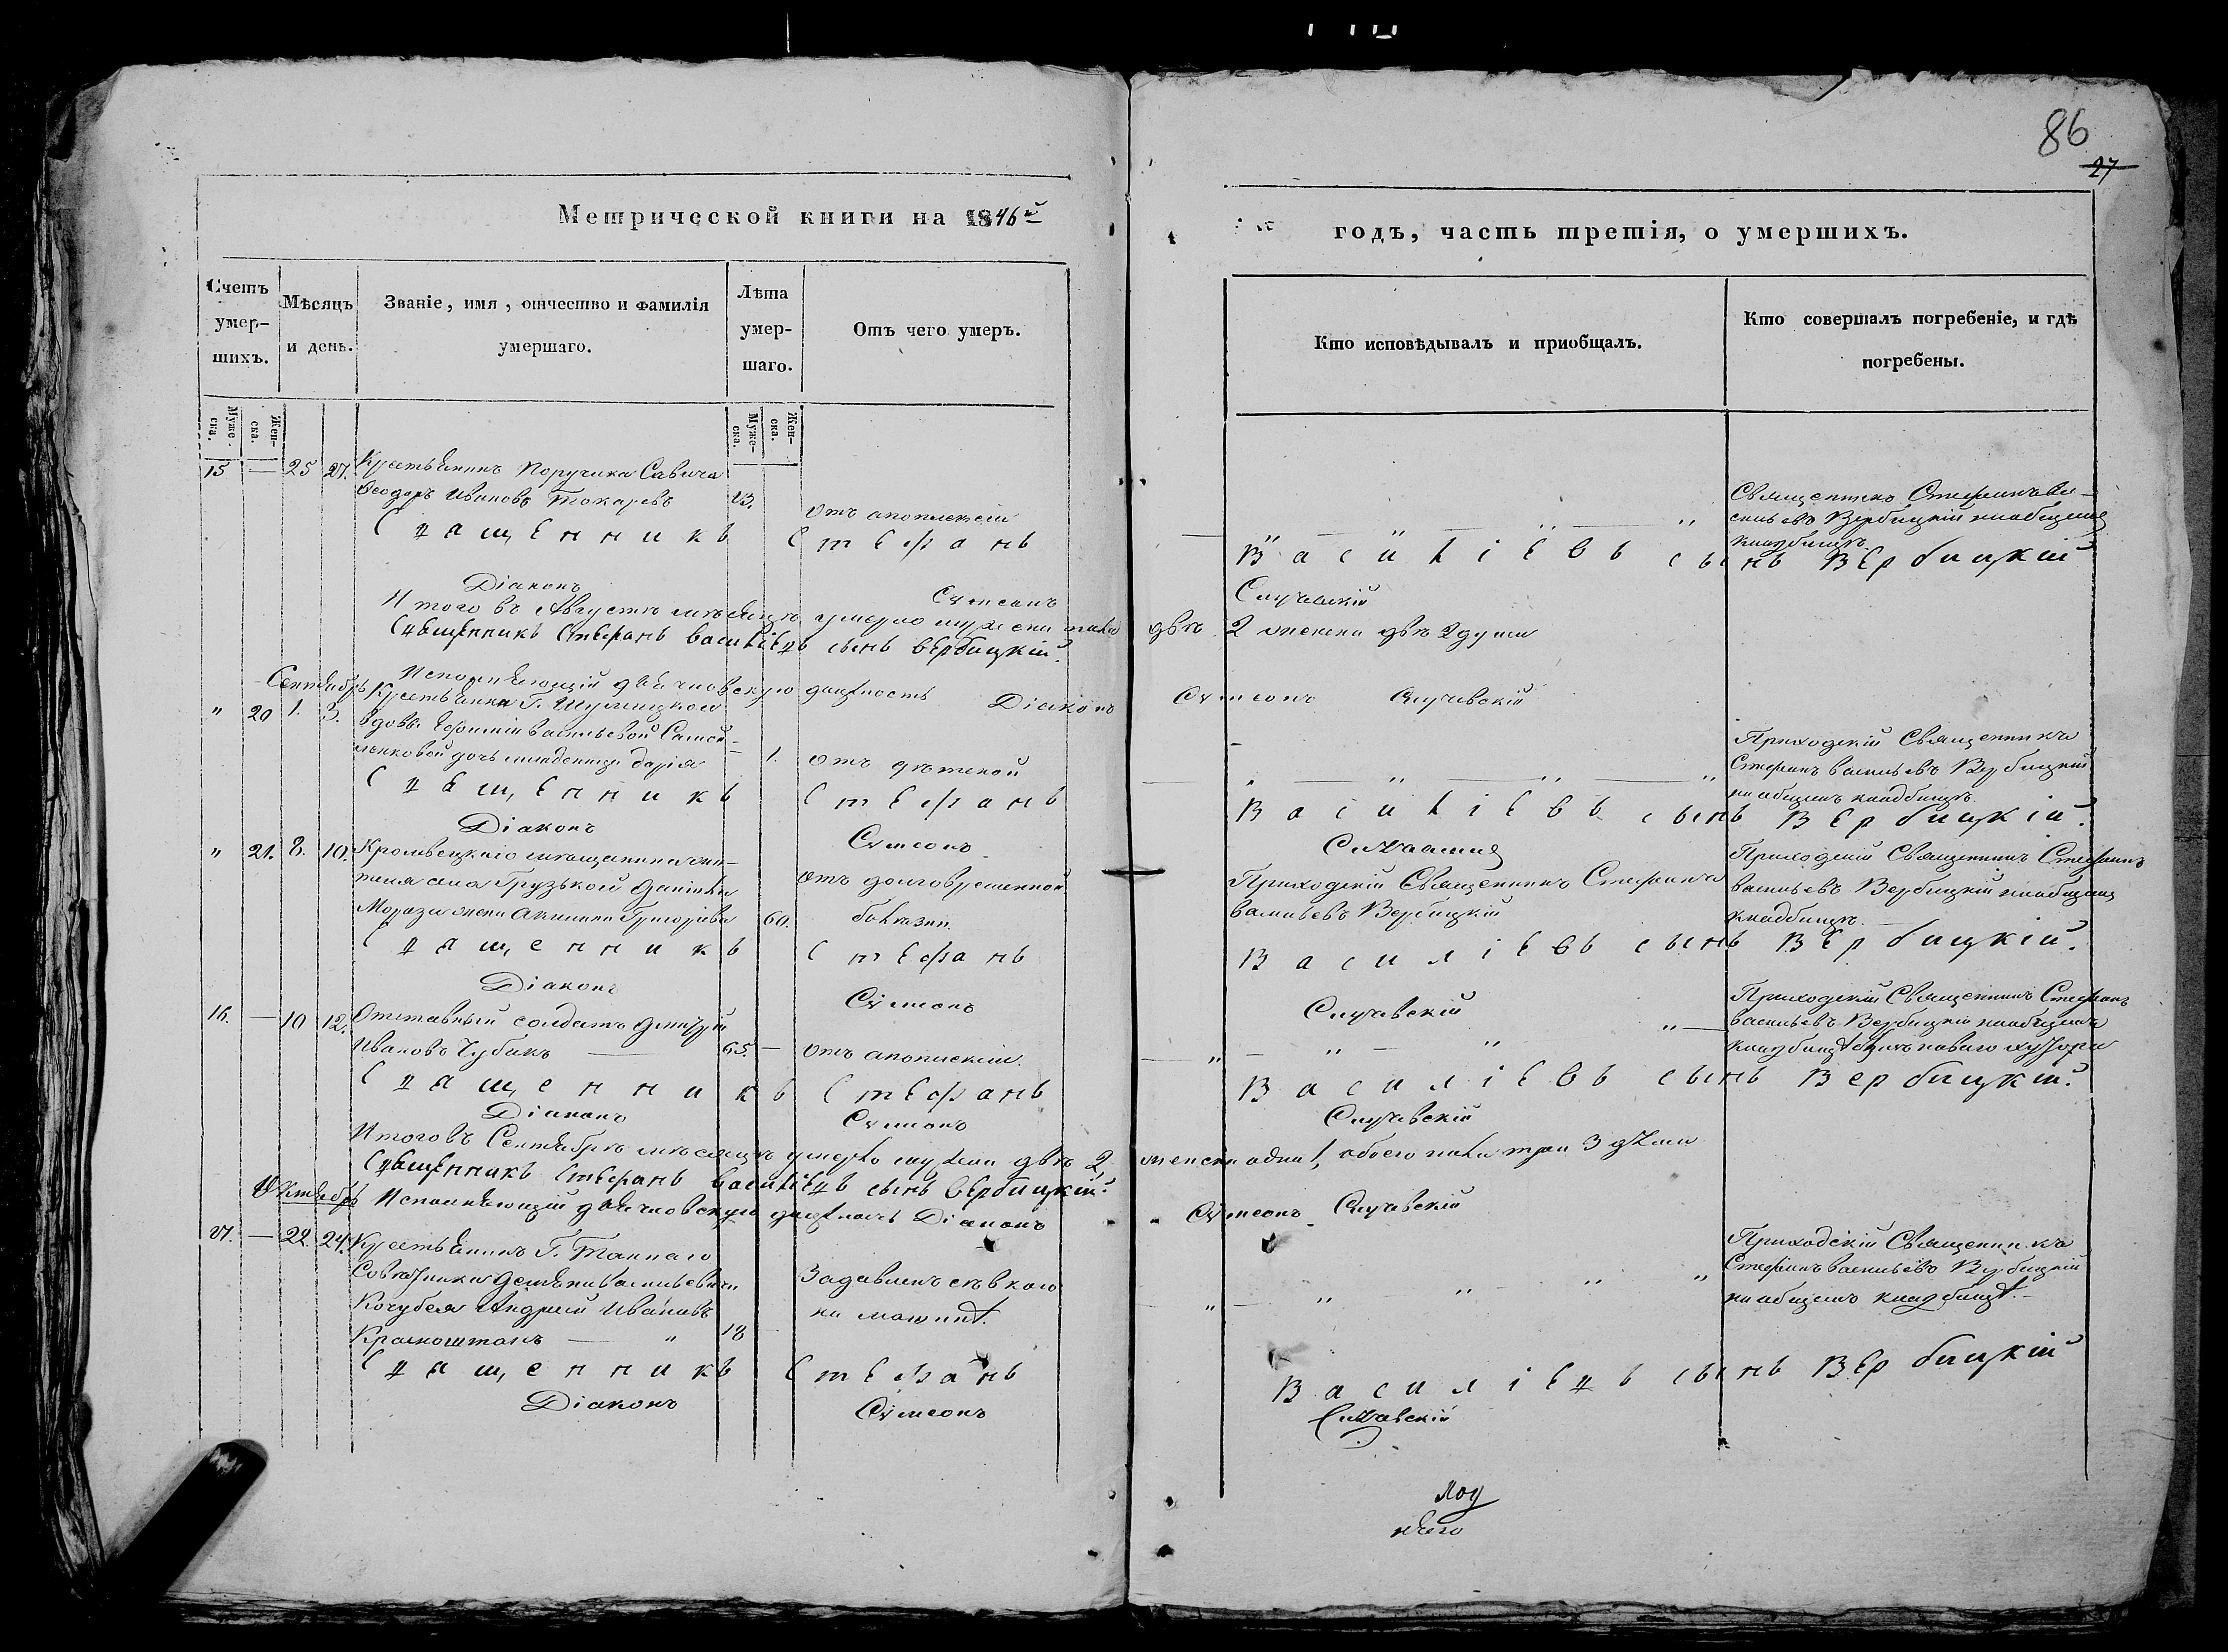 86
27
Метрической книги на 1846й
годъ, часть третія, о умершихъ.
Счетъ умер-шихъ.
Мѣсяцъ и день.
Званіе, имя, отчество и фамилія умершаго.
Лѣта умер-шаго.
Отъ чего умеръ.
Кто исповѣдывалъ и приобщалъ.
Кто совершалъ погребеніе, и гдѣ погребены.
Муже-ска.
Жен-ска.
Муже-ска.
Жен-ска.
15 — 25 27. Крестьянинъ Поручика Савича
Ѳеодоръ Ивановъ Токаревъ
отъ апоплексіи
Священникъ Стефанъ Ва-
сильевъ Вербицкій на общемъ
кладбищѣ
Священникъ Стефанъ Василіевъ сынъ Вербицкій
Діаконъ Сѵмеонъ Случевскій
Итого въ Августѣ мѣсяцѣ умерло мужеска пола двѣ 2 женска двѣ 2 души
Священникъ Стефанъ Василіевъ сынъ Вербицкій.
Исполняющій дьячковскую должность Діаконъ Сѵмеонъ Случевскій
Сентябрь
" 20 1. 3. Крестьянки Г.
вдовы Васильевой Самой-
ленковой дочь младенецъ Дарія
1. отъ дѣтской
Приходскій Священникъ
Стефанъ Васильевъ Вербицкій
на общемъ кладбищѣ.
Священникъ Стефанъ Василіевъ сынъ Вербицкій.
Діаконъ Сѵмеонъ
" 21. 8. 10. Кролевецкаго мѣщанина жи-
теля села Грузской Даніила
Мороза жена Акилина Григоріева
60. отъ долговременной
болѣзни.
Приходскій Священникъ Стефанъ
Васильевъ Вербицкій
Приходскій Священникъ Стефанъ
Васильевъ Вербицкій на общемъ
кладбищѣ.
Священникъ Стефанъ Василіевъ сынъ Вербицкій.
Діаконъ Сѵмеонъ Случевскій
16. — 10 12. Отставный солдатъ Димитрій
Ивановъ Чубикъ — 65. — отъ апоплексіи.
Приходскій Священникъ Стефанъ
Васильевъ Вербицкій на общемъ
кладбищѣ новаго хутора
Священникъ Стефанъ Василіевъ сынъ Вербицкій.
Діаконъ Сѵмеонъ Случевскій
Итого въ Сентябрѣ мѣсяцѣ умерло мужска двѣ 2, женска одна 1, обоего пола три 3 души
Священникъ Стефанъ Василіевъ сынъ Вербицкій.
Октябрь
Исполняющій дьячковскую должность Діаконъ Сѵмеонъ Случевскій
17. — 22. 24. Крестьянинъ Г. Тайнаго
Совѣтника Васильевича
Кочубея Андрей Ивановъ
Краснаштанъ — " 18
Задавленъ
на машинѣ.
Приходскій Священникъ
Стефанъ Васильевъ Вербицкій
на общемъ кладбищѣ.
Священникъ Стефанъ Василіевъ сынъ Вербицкій
Діаконъ Сѵмеонъ Случевскій